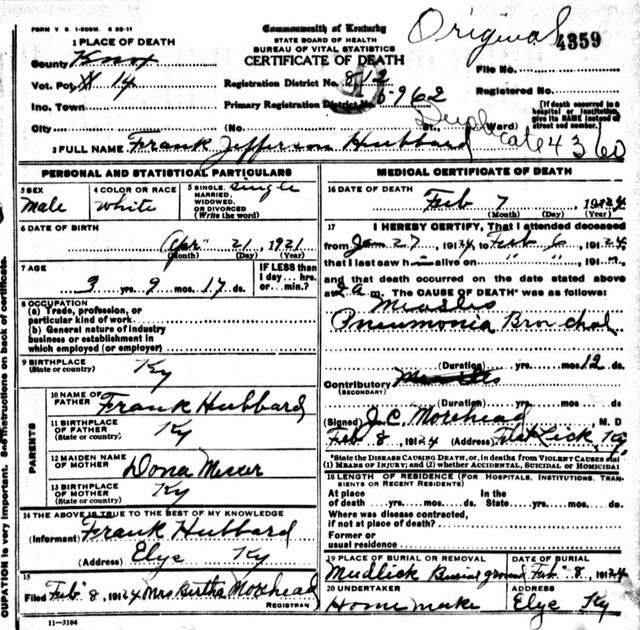 FORM V S. 1-200M. 6 20-11
Commonwealth of Kentucky
STATE BOARD OF HEALTH
BUREAU OF VITAL STATISTICS
CERTIFICATE OF DEATH
Original
4359
1 PLACE OF DEATH
County Knox
Vot. Pct. 14
Inc. Town
City (No. St., Ward)
Registration District No. 812
Primary Registration District No. 6962
File No.
Registered No.
[If death occurred in a
hospital or institution,
give its NAME instead of
street and number.]
Duplicate 4360
2 FULL NAME Frank Jefferson Hubbard
PERSONAL AND STATISTICAL PARTICULARS
3 SEX
Male
4 COLOR OR RACE
White
5 SINGLE, Single
MARRIED,
WIDOWED,
OR DIVORCED
(Write the word)
6 DATE OF BIRTH
Apr 21, 1921
(Month) (Day) (Year)
7 AGE
IF LESS than
1 day... hrs.
or... min.?
yrs. 9 mos. 17 ds.
8 OCCUPATION
(a) Trade, profession, or
particular kind of work
(b) General nature of industry
business or establishment in
which employed (or employer)
9 BIRTHPLACE
(State or country)
Ky
PARENTS
10 NAME OF
FATHER
Frank Hubbard
11 BIRTHPLACE
OF FATHER
(State or country)
Ky
12 MAIDEN NAME
OF MOTHER
Dona Messer
13 BIRTHPLACE
OF MOTHER
(State or country)
Ky
14 THE ABOVE IS TRUE TO THE BEST OF MY KNOWLEDGE
(Informant) Frank Hubbard
(Address) Elys Ky
15
Filed Feb 8, 1924 Mrs Bertha Morehead
REGISTRAR
11-3184
MEDICAL CERTIFICATE OF DEATH
16 DATE OF DEATH
Feb 7 1924
(Month) (Day) (Year)
17 I HEREBY CERTIFY, That I attended deceased
from Jan 27, 1924 to Feb 6, 1924
that I last saw h im alive on " " , 191
and that death occurred on the date stated above
at 2 a m. The CAUSE OF DEATH* was as follows:
Measles
Pneumonia Bronchal
(Duration) yrs. mos. 12 ds.
Contributory Measles
(SECONDARY)
(Duration) yrs. mos. ds.
(Signed) J. C. Morehead, M. D
Feb 8, 1924 (Address) Flat Lick, Ky
*State the DISEASE CAUSING DEATH, or, in deaths from VIOLENT CAUSES stat
(1) MEANS OF INJURY; and (2) whether ACCIDENTAL, SUICIDAL OR HOMICIDAL
18 LENGTH OF RESIDENCE (FOR HOSPITALS, INSTITUTIONS, TRANSIENTS OR RECENT RESIDENTS)
At place In the
of death yrs. mos. ds. State yrs. mos. ds.
Where was disease contracted,
if not at place of death?
Former or
usual residence
19 PLACE OF BURIAL OR REMOVAL
Mudlick Burial ground
DATE OF BURIAL
Feb 8, 1924
20 UNDERTAKER
Home make
ADDRESS
Elys Ky
CUPATION is very important. See instructions on back of certificate.